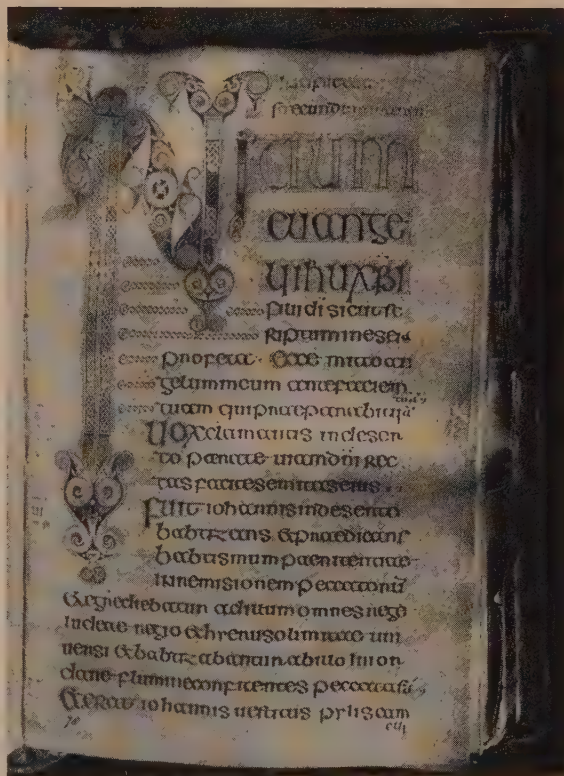 Incipit euan
secundum marcum
INitium
euange
lii ihu xpi
filii di sicut sc
riptum in esei
profeta · Ecce mitto an
gelum meum ante faciem
tuam qui praeparabit uia
tuam
Uox clamantis in deser
to parate uiam dni rec
tas facite semitas eius
Fuit iohannis in deserto
babtizans & praedicans
babtismum paenitentiae
in remisionem peccatorū
& egrediebatur ad illum omnes regi
iudeae regio & hierusolimitae uni
uersi & babtizabantur ab illo in ior
dane flumine confitentes peccata sua
& erat iohannis uestitus pylis cam
eli